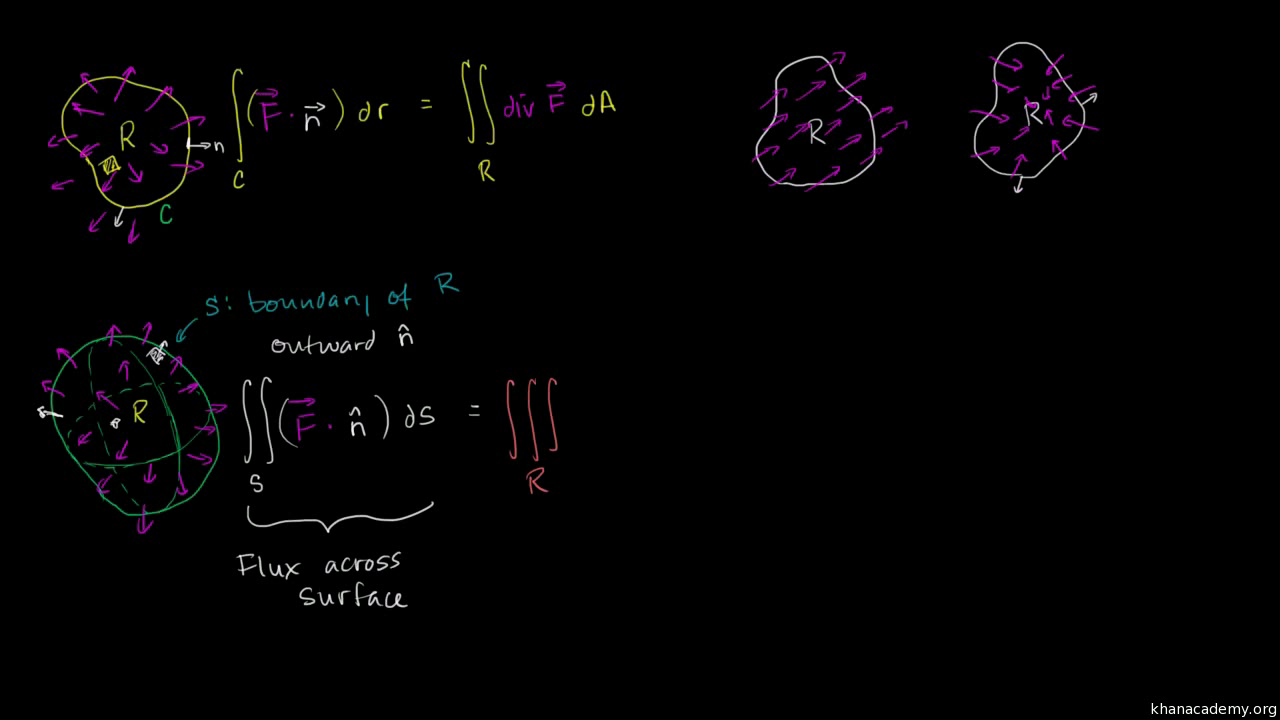 R
n
C
∫ (F⃗ · n⃗) dr = ∫∫ div F⃗ dA
C
R
R
R
S: boundary of R
outward n̂
R
∫∫ (F⃗ · n̂) dS = ∫∫∫
S
R
Flux across
surface
khanacademy.org